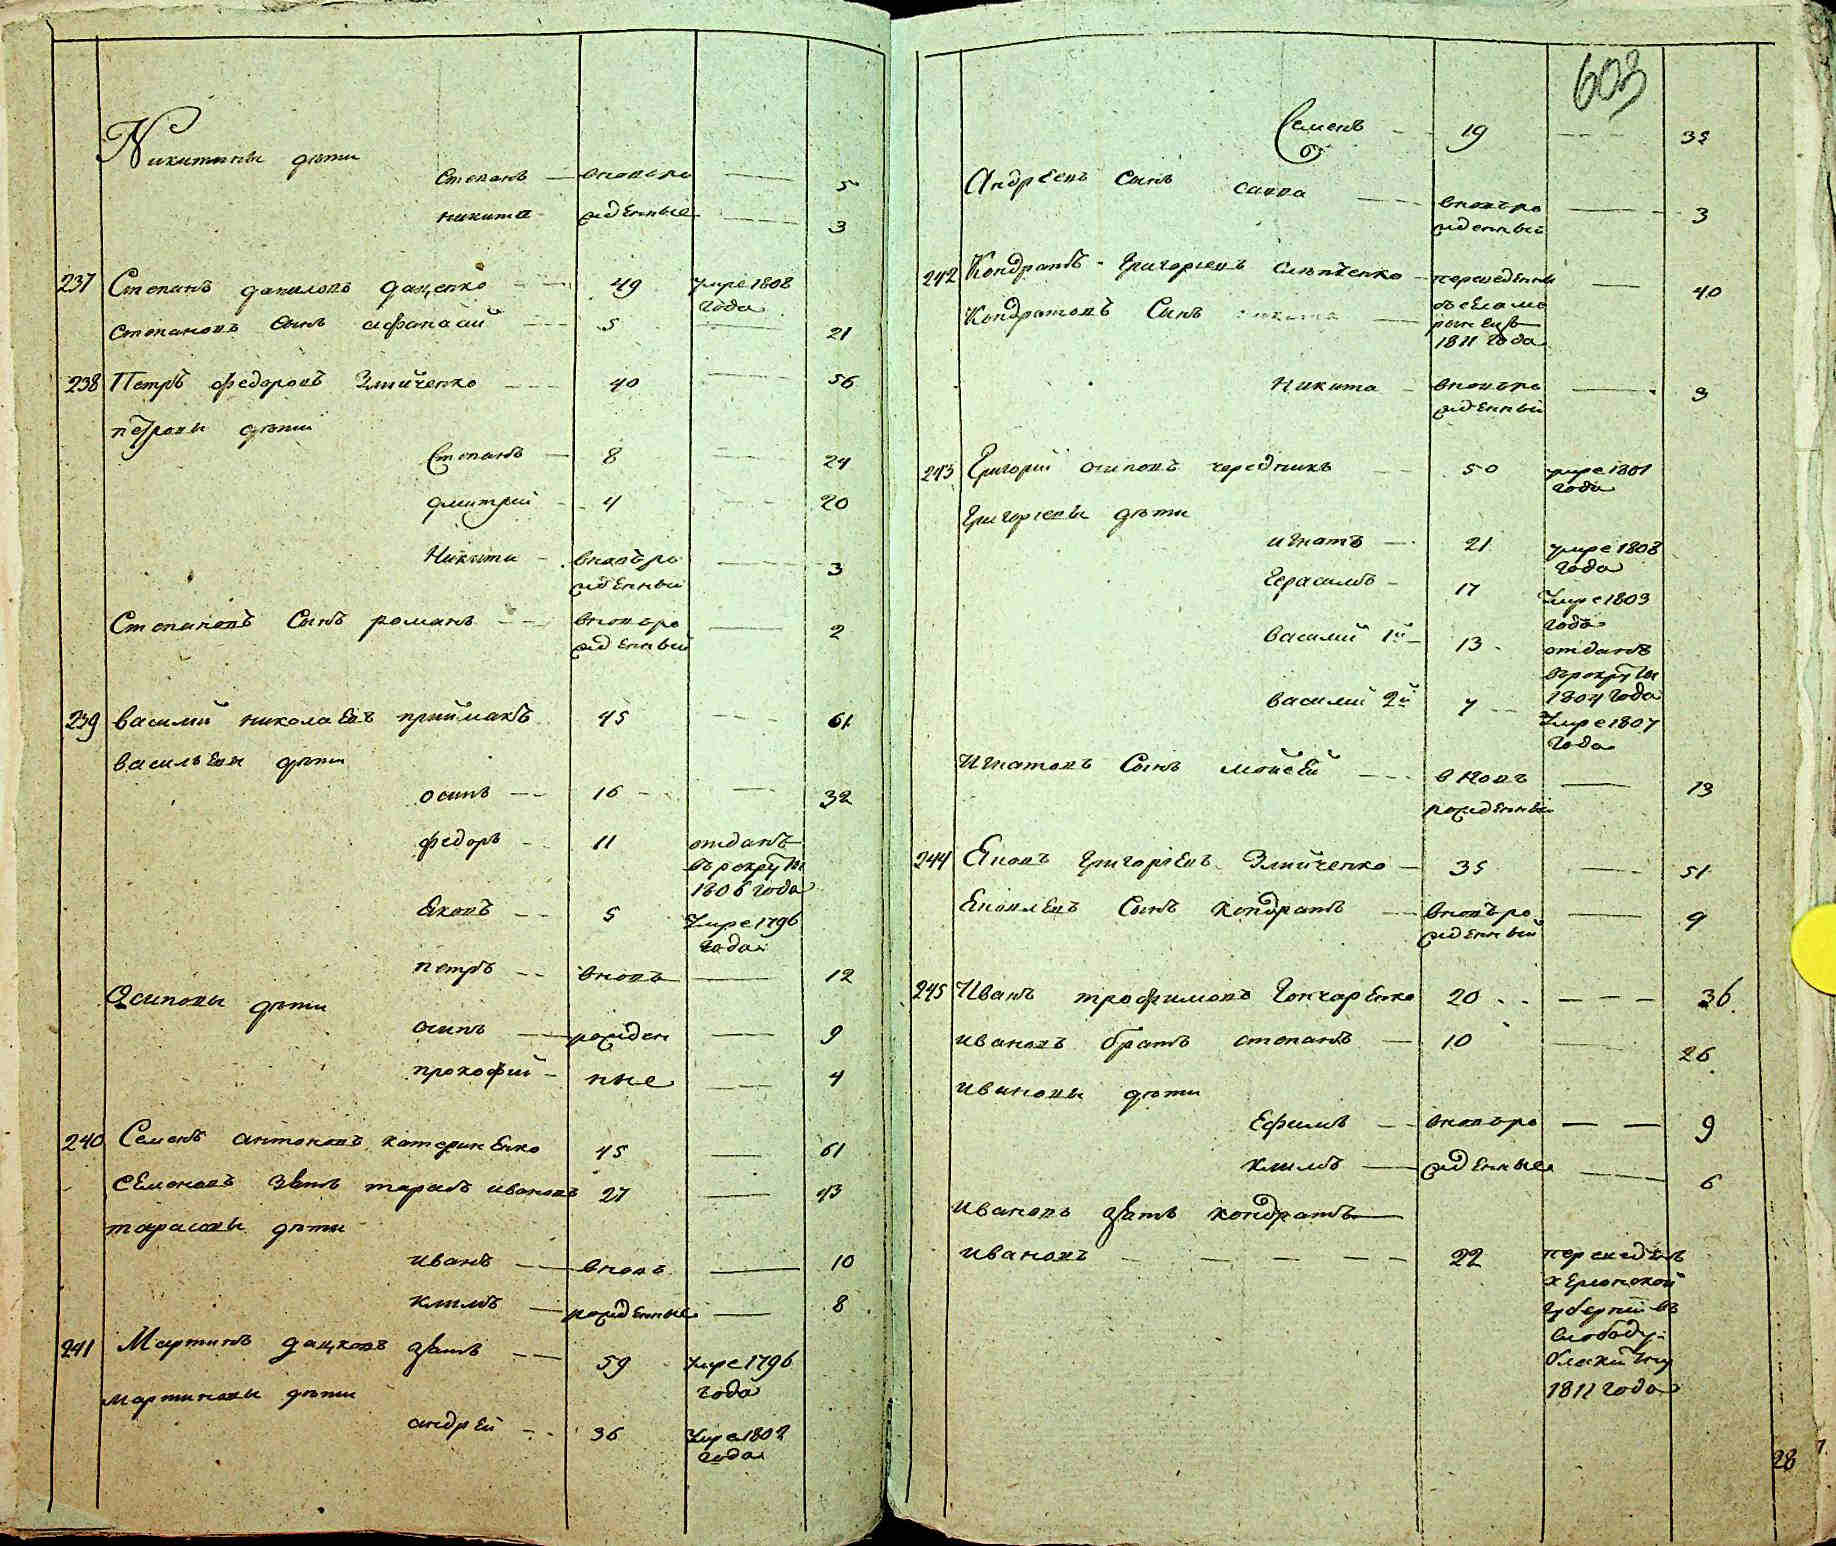 Никитины дѣти
Степанъ — вновьро — 5
никита — жденные — 3
237 Степанъ даниловъ даценко — 49 умре 1808
года
степановъ сынъ афанасий — 5 — 21
238 Петръ федоровъ Змийченко — 40 — 56
петровы дѣти
Степанъ — 8 — 24
дмитрий — 4 — 20
Никита — вновьро — 3
жденный
Степановъ Сынъ романъ — вновьро — 2
жденный
239 василий николаевъ приймакъ 45 — 61
васильевы дѣти
осипъ — 16 — 32
федоръ — 11 отданъ
въ рекруты
1806 года
Яковъ — 5 Умре 1796
года
петръ — вновь — 12
Осиповы дѣти
осипъ — рожден — 9
прокофий — ные — 4
240 Семенъ антоновъ катериненко 45 — 61
семеновъ зять тарасъ ивановъ 27 — 43
тарасовы дѣти
иванъ — вновь — 10
климъ — рожденные — 8
241 Мартинъ дацковъ зять — 59 умре 1796
года
мартиновы дѣти
андрей — 36 Умре 1802
года
603
Семенъ — 19 — 35
Андреевъ Сынъ савва — вновьро — 3
жденный
242 Кондратъ Григорьевъ слѣпченко — переведенны — 40
1811 года
Кондратовъ Сынъ
Никита — вновьро — 3
жденный
243 Григорий осиповъ чередникъ — 50 умре 1801
года
Григорьевы дѣти
игнатъ — 21 умре 1808
года
Герасимъ — 17 Умре 1803
года
василий 1й — 13 отданъ
въ рекруты
1804 года
василий 2й — 7 Умре 1807
года
Игнатовъ Сынъ мойсей — вновь — 13
рожденный
244 Яковъ Григорьевъ Змийченко — 35 — 51
Яковлевъ Сынъ кондратъ — вновьро — 9
жденный
245 Иванъ трофимовъ Гончаренко 20 — 36
ивановъ братъ степанъ — 10 — 26
ивановы дѣти
Ефимъ — вновьро — 9
климъ — жденные — 6
ивановъ зять кондратъ
ивановъ — 22 переведенъ
херсонской
губернии въ
слободу
1811 года
28